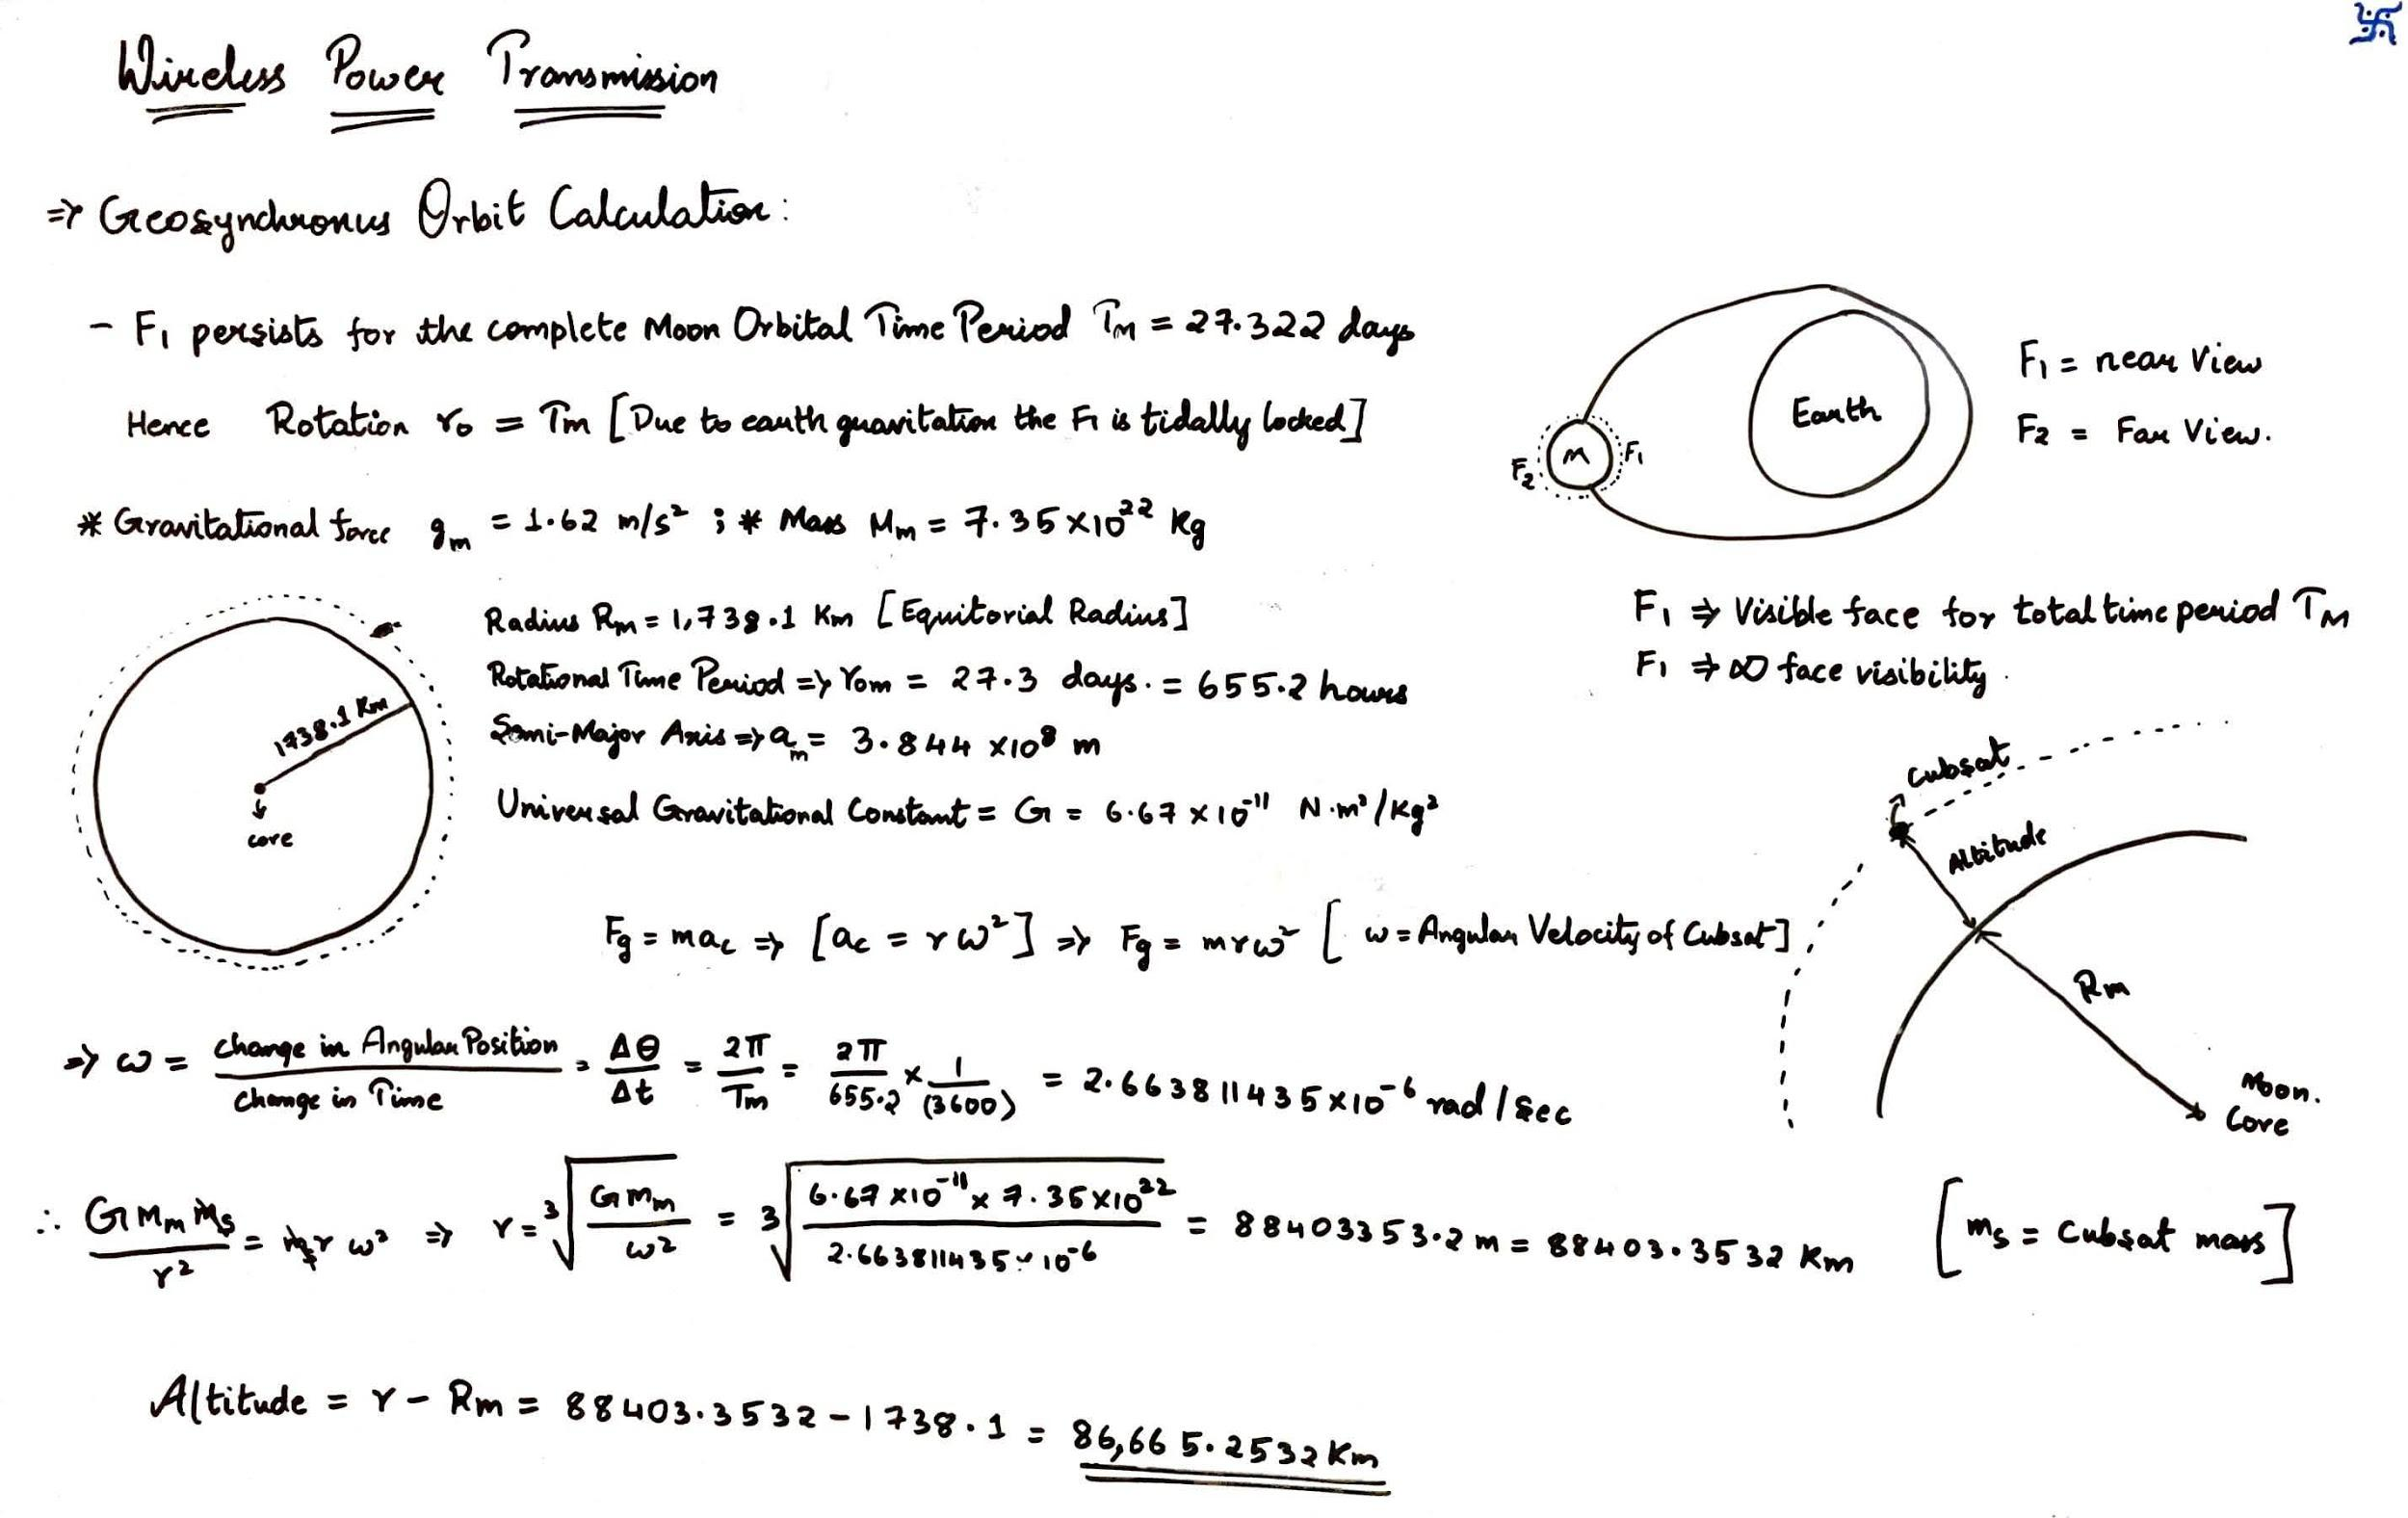 卐
Wireless Power Transmission
⇒ Geosynchronus Orbit Calculation:
- F₁ persists for the complete Moon Orbital Time Period Tm = 27.322 days
Hence Rotation r₀ = Tm [Due to earth gravitation the F₁ is tidally locked]
Earth
M
F₁
F₂
F₁ = near View
F₂ = Far View.
* Gravitational force gm = 1.62 m/s² ; * Mass Mm = 7.35 × 10²² Kg
F₁ ⇒ Visible face for total time period TM
F₁ ⇒ ∞ face visibility.
1738.1 Km
core
Radius Rm = 1,738.1 Km [Equitorial Radius]
Rotational Time Period ⇒ rom = 27.3 days. = 655.2 hours
Semi-Major Axis ⇒ am = 3.844 × 10⁸ m
Universal Gravitational Constant = G = 6.67 × 10⁻¹¹ N.m²/Kg²
Cubsat
Altitude
Rm
Moon.
Core
Fg = mac ⇒ [ac = rω²] ⇒ Fg = mrω² [ω = Angular Velocity of Cubsat]
⇒ ω = change in Angular Position / change in Time = Δθ/Δt = 2π/Tm = 2π/655.2 × 1/(3600) = 2.663811435 × 10⁻⁶ rad/sec
∴ GMmms/r² = msrω² ⇒ r = ³√(GMm/ω²) = ³√(6.67 × 10⁻¹¹ × 7.35 × 10²² / 2.663811435 × 10⁻⁶) = 88403353.2 m = 88403.3532 Km [ms = Cubsat mass]
Altitude = r - Rm = 88403.3532 - 1738.1 = 86,665.2532 Km